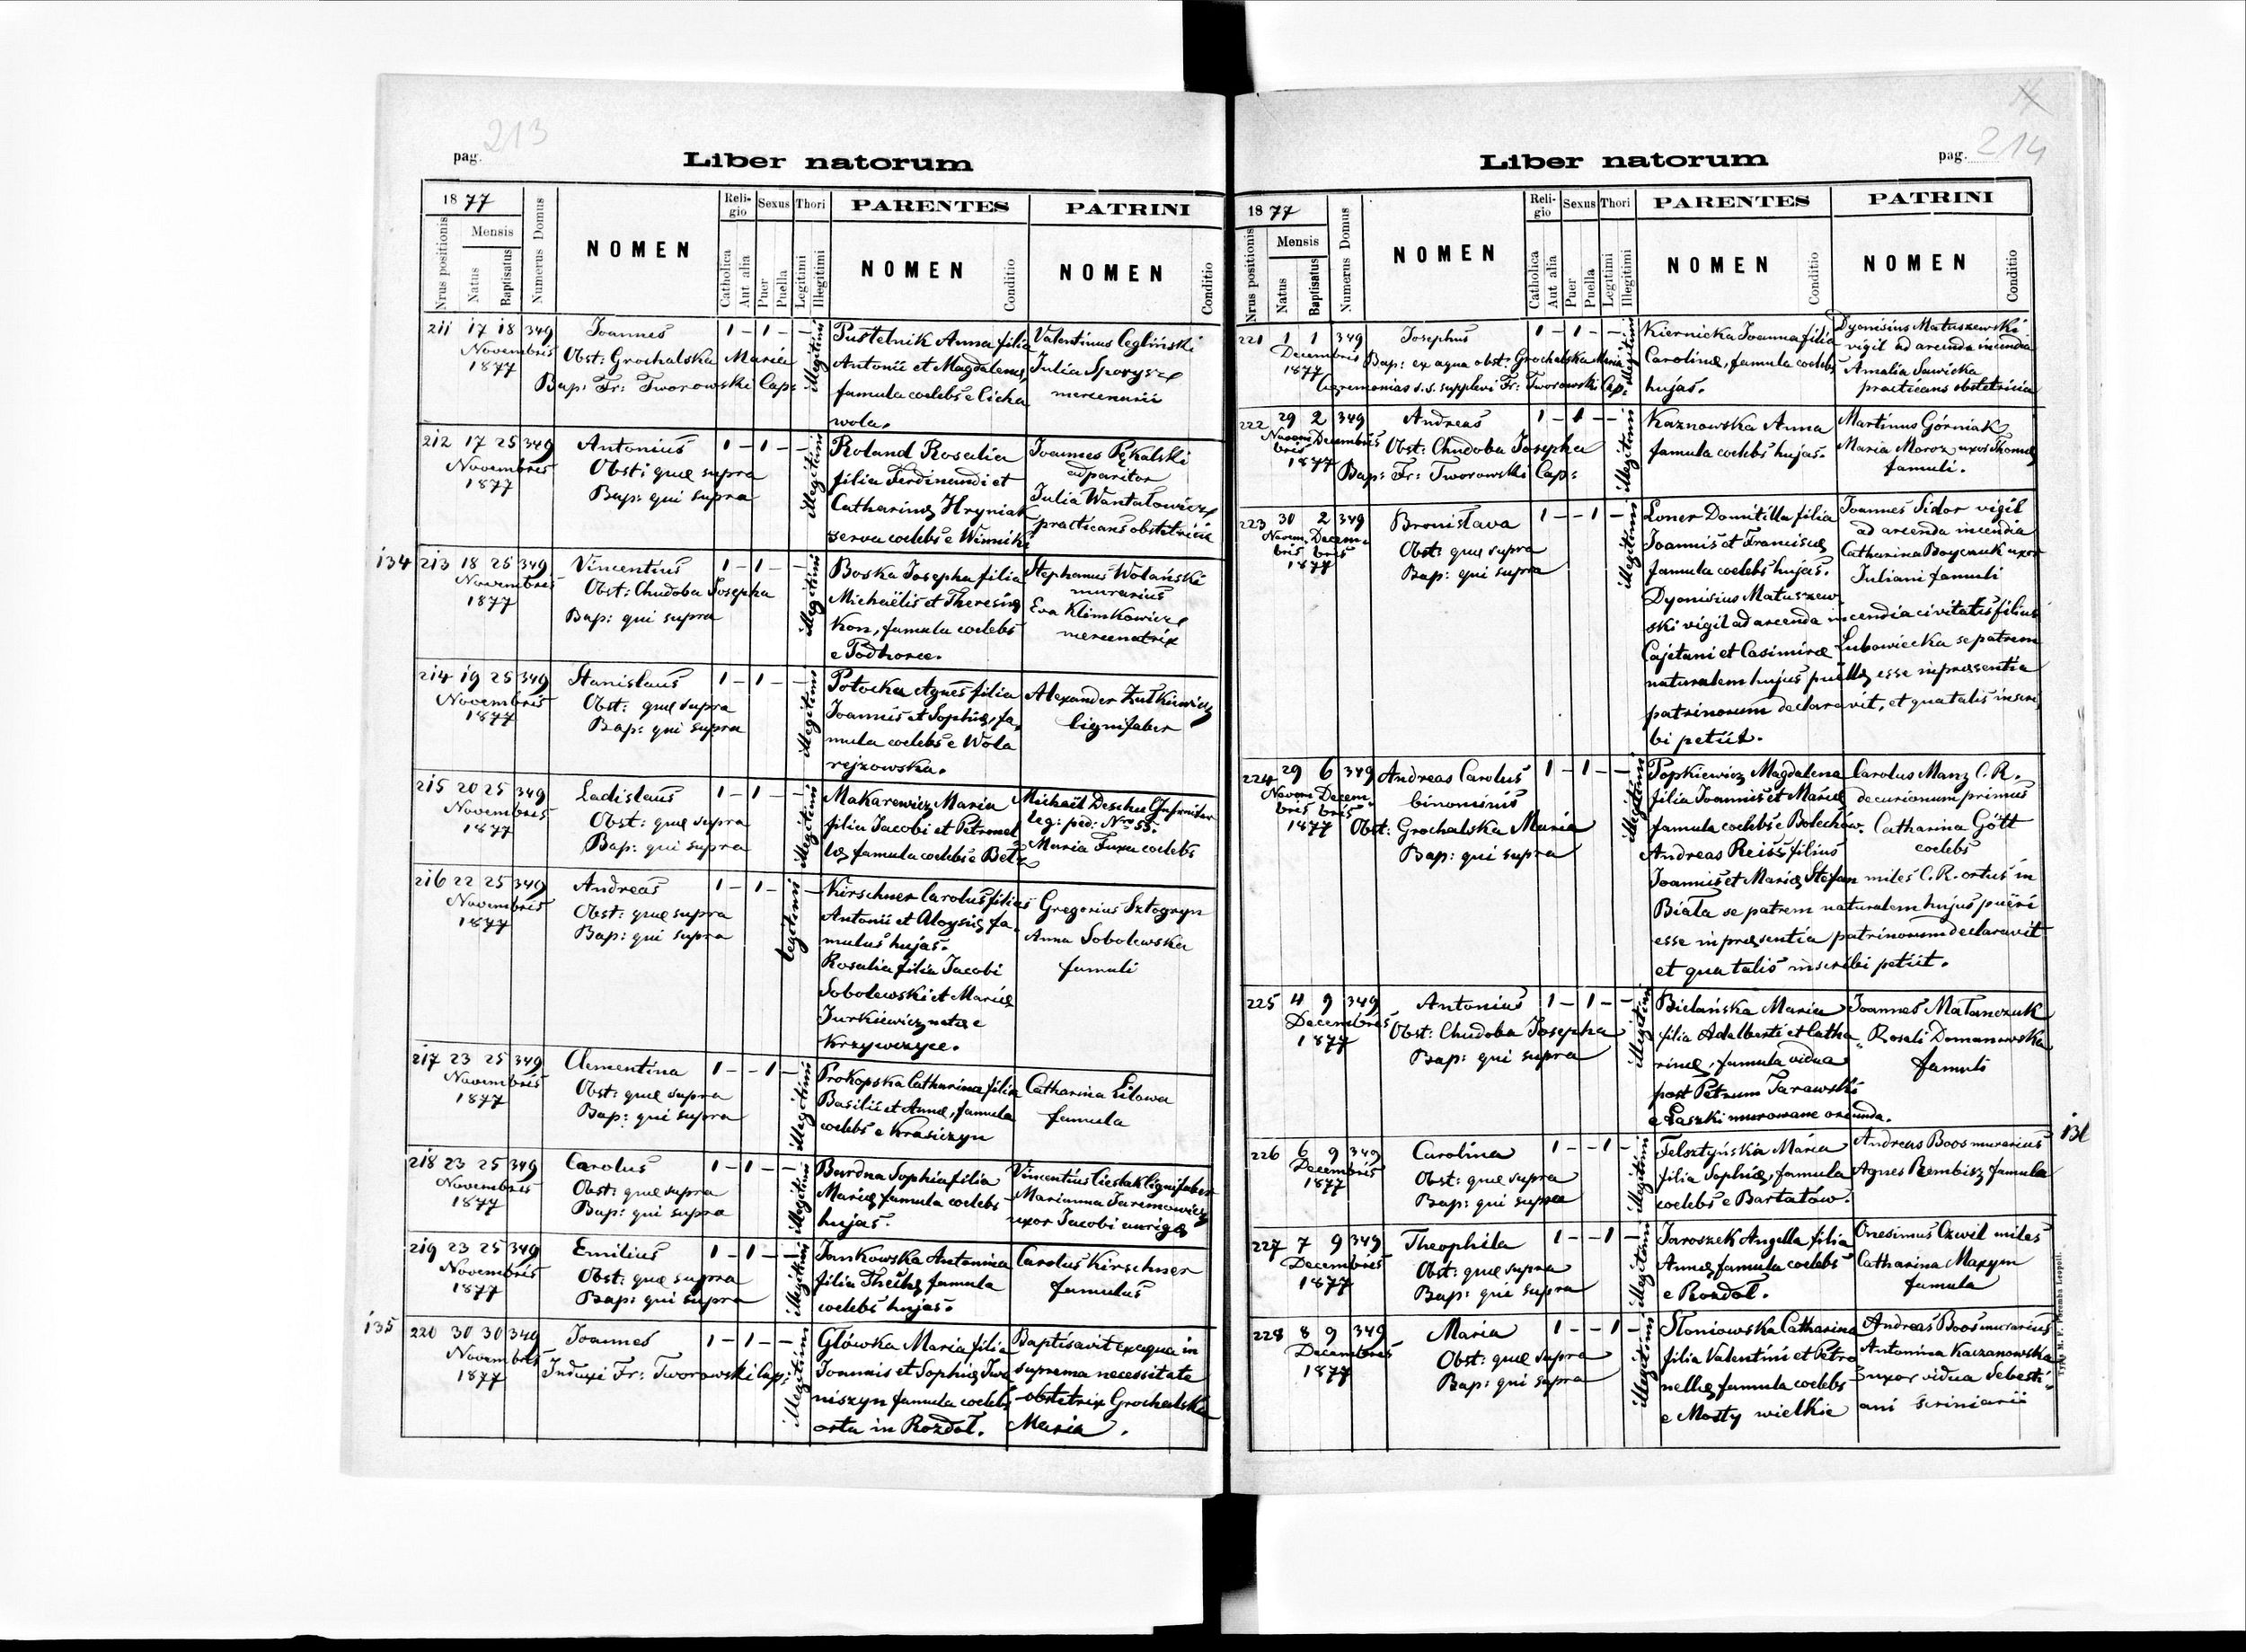 213
pag.
Liber natorum
1877
Nrus positionis
Mensis
Natus
Baptisatus
Numerus Domus
NOMEN
Religio
Catholica
Aut alia
Sexus
Puer
Puella
Thori
Legitimi
Illegitimi
PARENTES
NOMEN
Conditio
PATRINI
NOMEN
Conditio
211 17 18 349 Joannes 1 – 1 – –
Novembris
1877
Obst: Grochalska Maria
Bap: Fr: Tworowski Cap:
illegitimi
Pustelnik Anna filia
Antonii et Magdalenæ,
famula coelebs e Cicha
wola.
Valentinus Cegliński
Julia Sporysz
mercenarii
212 17 25 349 Antonius 1 – 1 – –
Novembris
1877
Obst: quæ supra
Bap: qui supra
illegitimi
Roland Rosalia
filia Ferdinandi et
Catharinæ Hryniak
serva coelebs e Winniki
Joannes Pękalski
adparitor
Julia Wantałowicz
practicans obstetricia
134
213 18 25 349 Vincentius 1 – 1 – –
Novembris
1877
Obst: Chudoba Josepha
Bap: qui supra
illegitimi
Boska Josepha filia
Michaëlis et Theresiæ
Kon, famula coelebs
e Podhorce.
Stephanus Wolański
murarius
Eva Klimkowicz
mercenatrix
214 19 25 349 Stanislaus 1 – 1 – –
Novembris
1877
Obst: quæ supra
Bap: qui supra
illegitimi
Potocka Agnes filia
Joannis et Sophiæ, fa-
mula coelebs e Wola
rejzowska.
Alexander Żułkiewicz
lignifaber
215 20 25 349 Ladislaus 1 – 1 – –
Novembris
1877
Obst: quæ supra
Bap: qui supra
illegitimi
Makarewicz Maria
filia Jacobi et Petronel
læ famula coelebs e Bełz
Michaël Deschu Gfreiter
leg: ped: Nro 55.
Maria Fuxa coelebs
216 22 25 349 Andreas 1 – 1 – –
Novembris
1877
Obst: quæ supra
Bap: qui supra
legitimi
Kirschner Carolus filius
Antonii et Aloysiæ fa-
mulus hujas.
Rosalia filia Jacobi
Sobolewski et Mariæ
Jurkiewicz nata e
Krzywczyce.
Gregorius Sztogryn
Anna Sobolewska
famuli
217 23 25 349 Clementina 1 – – 1 –
Novembris
1877
Obst: quæ supra
Bap: qui supra
illegitimi
Prokopska Catharina filia
Basilii et Annæ, famula
coelebs e Krasiczyn
Catharina Lilowa
famula
218 23 25 349 Carolus 1 – 1 – –
Novembris
1877
Obst: quæ supra
Bap: qui supra
illegitimi
Burdna Sophia filia
Mariæ famula coelebs
hujas.
Vincentius Cieślak lignifaber
Marianna Jaremowicz
uxor Jacobi aurigæ
219 23 25 349 Emilius 1 – 1 – –
Novembris
1877
Obst: quæ supra
Bap: qui supra
illegitimi
Jankowska Antonina
filia Theclæ famula
coelebs hujas.
Carolus Kirschner
famulus
135
220 30 30 349 Joannes 1 – 1 – –
Novembris
1877
Induxi Fr: Tworowski Cap:
illegitimi
Główka Maria filia
Joannis et Sophiæ Iwa-
niszyn famula coelebs
orta in Rozdoł.
Baptisavit ex aqua in
suprema necessitate
obstetrix Grochalska
Maria.
214
pag.
Liber natorum
1877
Nrus positionis
Mensis
Natus
Baptisatus
Numerus Domus
NOMEN
Religio
Catholica
Aut alia
Sexus
Puer
Puella
Thori
Legitimi
Illegitimi
PARENTES
NOMEN
Conditio
PATRINI
NOMEN
Conditio
221 1 1 349 Josephus 1 – 1 – –
Decembris
1877
Bap: ex aqua obst: Grochalska Maria
Ceremonias s.s. supplevi Fr: Tworowski Cap:
illegitimi
Kiernicka Joanna filia
Carolinæ, famula coelebs
hujas.
Dyonisius Matuszewski
vigil ad arcenda incendia
Amalia Sawicka
practicans obstetricia
222 29 2 349 Andreas 1 – 1 – –
Novem Decembris
bris
1877
Obst: Chudoba Josepha
Bap: Fr: Tworowski Cap:
illegitimi
Kaznowska Anna
famula coelebs hujas.
Martinus Górniak
Maria Moroz uxor Thomæ
famuli.
223 30 2 349 Bronislava 1 – – 1 –
Novem- Decem-
bris bris
1877
Obst: quæ supra
Bap: qui supra
illegitimi
Loner Domitilla filia
Joannis et Franciscæ
famula coelebs hujas.
Dyonisius Matuszew-
ski vigil ad arcenda incendia civitatis filius
Cajetani et Casimiræ Lubowiecka se patrem
naturalem hujus puellæ esse in præsentia
patrinorum declaravit, et qua talis inscri
bi petiit.
Joannes Sidor vigil
ad arcenda incendia
Catharina Boyczuk uxor
Juliani famuli
224 29 6 349 Andreas Carolus 1 – 1 – –
Novem- Decem-
bris bris
1877
binominis
Obst: Grochalska Maria
Bap: qui supra
illegitimi
Popkiewicz Magdalena
filia Joannis et Mariæ
famula coelebs e Bolechów.
Andreas Reiss filius
Joannis et Mariæ Stefan miles C. R. ortus in
Biała se patrem naturalem hujus pueri
esse in præsentia patrinorum declaravit
et qua talis inscribi petiit.
Carolus Manz C. R.
decurionum primus
Catharina Gött
coelebs
225 4 9 349 Antonius 1 – 1 – –
Decembris
1877
Obst: Chudoba Josepha
Bap: qui supra
illegitimi
Bielańska Maria
filia Adalberti et Catha
rinæ, famula vidua
post Petrum Tarawski
e Laszki murowane oriunda.
Joannes Matanczuk
Rosali Domanowska
famuli
226 6 9 349 Carolina 1 – – 1 –
Decembris
1877
Obst: quæ supra
Bap: qui supra
illegitimi
Felsztyńska Maria
filia Sophiæ, famula
coelebs e Bartatów.
Andreas Boos murarius
Agnes Rembisz famula
227 7 9 349 Theophila 1 – – 1 –
Decembris
1877
Obst: quæ supra
Bap: qui supra
illegitimi
Jaroszek Angella filia
Annæ famula coelebs
e Rozdoł.
Onesimus Czwil miles
Catharina Maxym
famula
228 8 9 349 Maria 1 – – 1 –
Decembris
1877
Obst: quæ supra
Bap: qui supra
illegitimi
Słoniowska Catharina
filia Valentini et Petro
nellæ famula coelebs
e Mosty wielkie
Andreas Boos murarius
Antonina Kaczanowska
uxor vidua Sebasti-
ani scriniarii
Typis M. F. Poremba Leopoli.